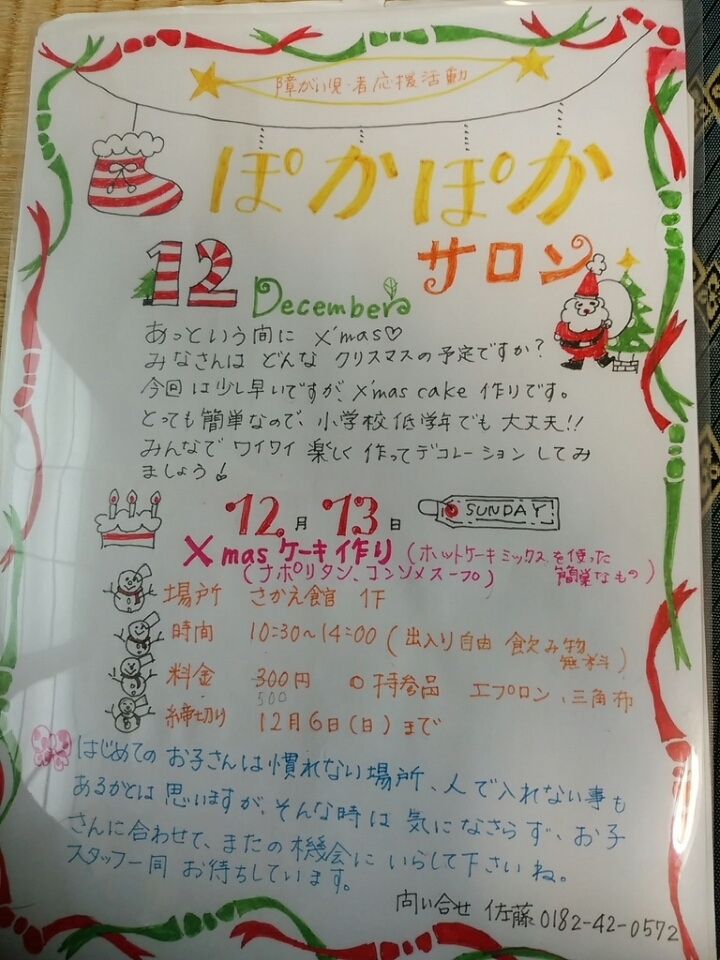 障がい児・者応援活動
ぽかぽか
サロン
12
December
あっという間に X'mas♡
みなさんは どんな クリスマスの予定ですか?
今回は少し早いですが、X'mas cake 作りです。
とっても簡単なので、小学校低学年でも大丈夫!!
みんなで ワイワイ 楽しく 作ってデコレーション してみ
ましょう!
12月13日 SUNDAY
X mas ケーキ作り (ホットケーキミックスを使った
簡単なもの)
(ナポリタン、コンソメスープ)
場所 さかえ館 1F
時間 10:30~14:00 (出入り自由 飲み物
無料)
料金 300円 ○持参品 エプロン、三角布
500
締切り 12月6日(日)まで
はじめての お子さんは慣れない場所、人で入れない事も
あるかとは 思いますが、そんな時は 気になさらず、お子
さんに合わせて、またの機会に いらして下さいね。
スタッフ一同 お待ちしています。
問い合せ 佐藤 0182-42-0572